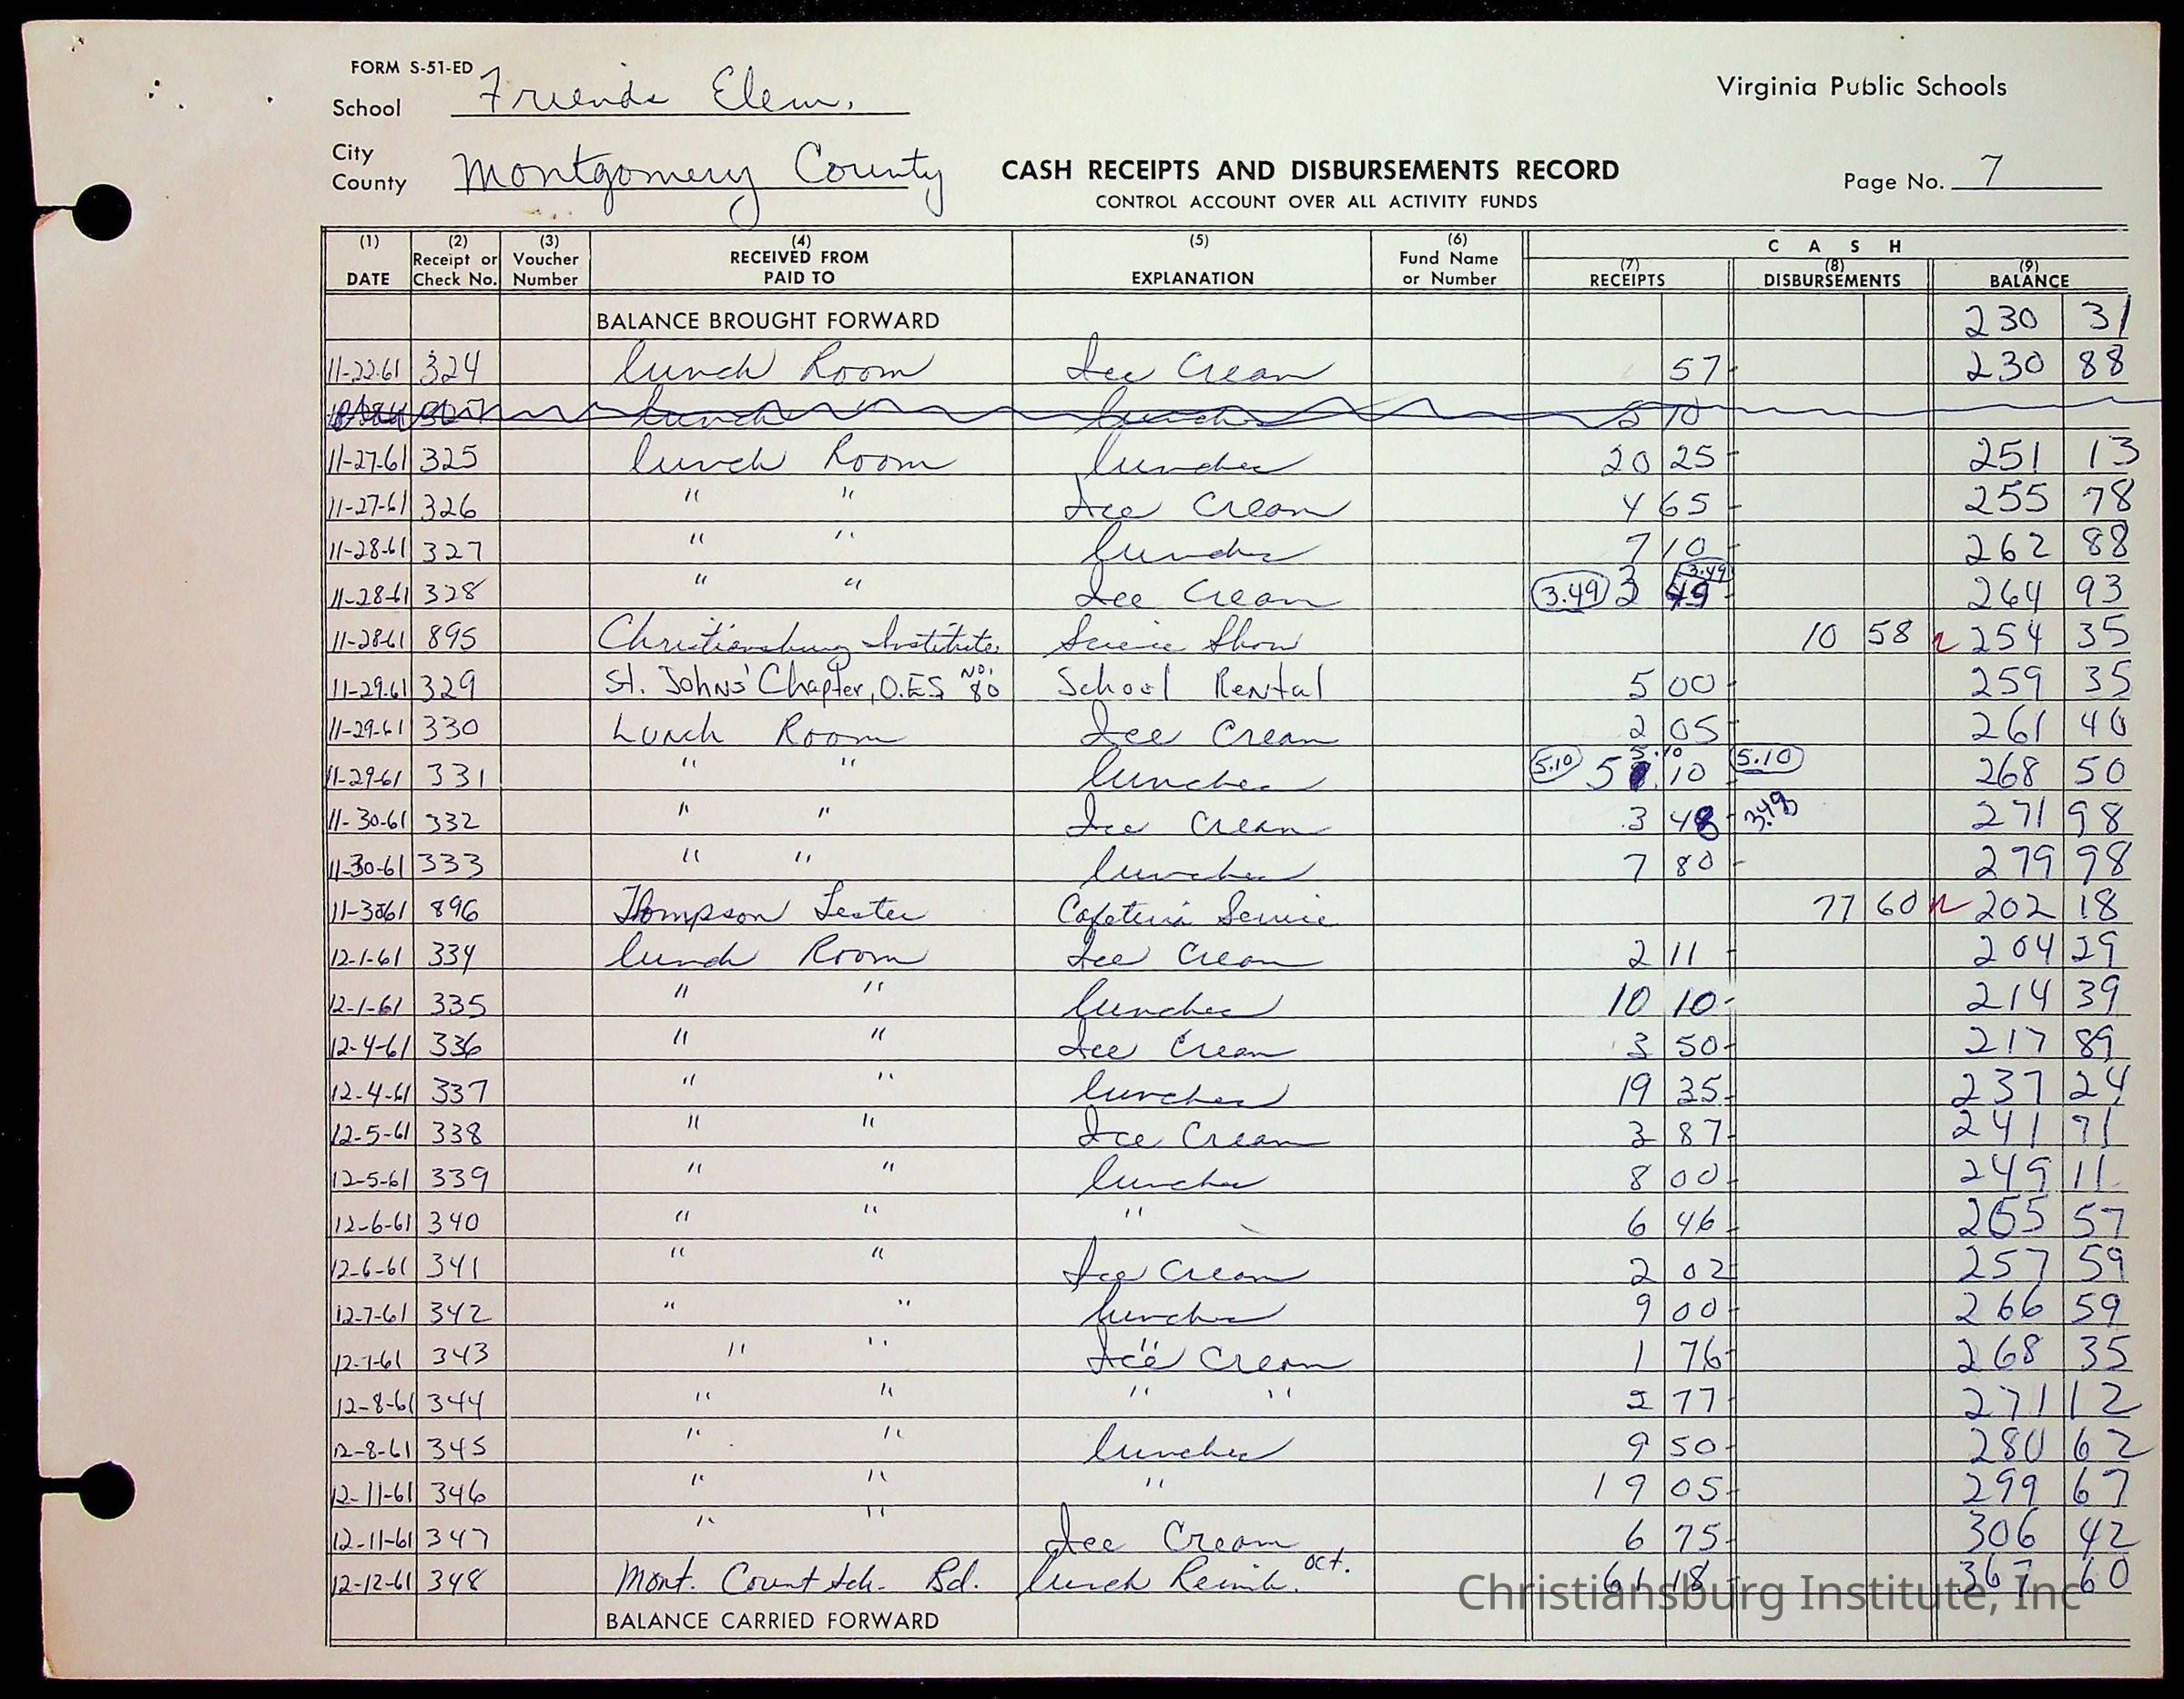 FORM S-51-ED
School Friends Elem.
Virginia Public Schools
City
County Montgomery County
CASH RECEIPTS AND DISBURSEMENTS RECORD
CONTROL ACCOUNT OVER ALL ACTIVITY FUNDS
Page No. 7
(1) DATE (2) Receipt or Check No. (3) Voucher Number (4) RECEIVED FROM PAID TO (5) EXPLANATION (6) Fund Name or Number CASH (7) RECEIPTS (8) DISBURSEMENTS (9) BALANCE
BALANCE BROUGHT FORWARD 230 31
11-22-61 324 Lunch Room Ice Cream 57 230 88
lunch lunches 5 10
11-27-61 325 Lunch Room lunches 20 25 251 13
11-27-61 326 " " Ice Cream 4 65 255 78
11-28-61 327 " " lunches 7 10 262 88
11-28-61 328 " " Ice Cream 3.49 3 49 3.49 264 93
11-28-61 895 Christiansburg Institute Science Show 10 58 254 35
11-29-61 329 St. Johns' Chapter, O.E.S NO. 80 School Rental 5 00 259 35
11-29-61 330 Lunch Room Ice Cream 2 05 261 40
11-29-61 331 " " lunches 5.10 5 .10 5.10 5.10 268 50
11-30-61 332 " " Ice Cream 3 48 271 98
11-30-61 333 " " lunches 7 80 279 98
11-30-61 896 Thompson Lester Cafeteria Service 77 60 202 18
12-1-61 334 Lunch Room Ice Cream 2 11 204 29
12-1-61 335 " " lunches 10 10 214 39
12-4-61 336 " " Ice Cream 3 50 217 89
12-4-61 337 " " lunches 19 35 237 24
12-5-61 338 " " Ice Cream 3 87 241 91
12-5-61 339 " " lunches 8 00 249 11
12-6-61 340 " " " 6 46 255 57
12-6-61 341 " " Ice Cream 2 02 257 59
12-7-61 342 " " lunches 9 00 266 59
12-7-61 343 " " Ice Cream 1 76 268 35
12-8-61 344 " " " " 2 77 271 12
12-8-61 345 " " lunches 9 50 280 62
12-11-61 346 " " " 19 05 299 67
12-11-61 347 " " Ice Cream 6 75 306 42
12-12-61 348 Mont. Count Sch. Bd. lunch Reimb. Oct. 61 18 367 60
BALANCE CARRIED FORWARD
Christiansburg Institute, Inc